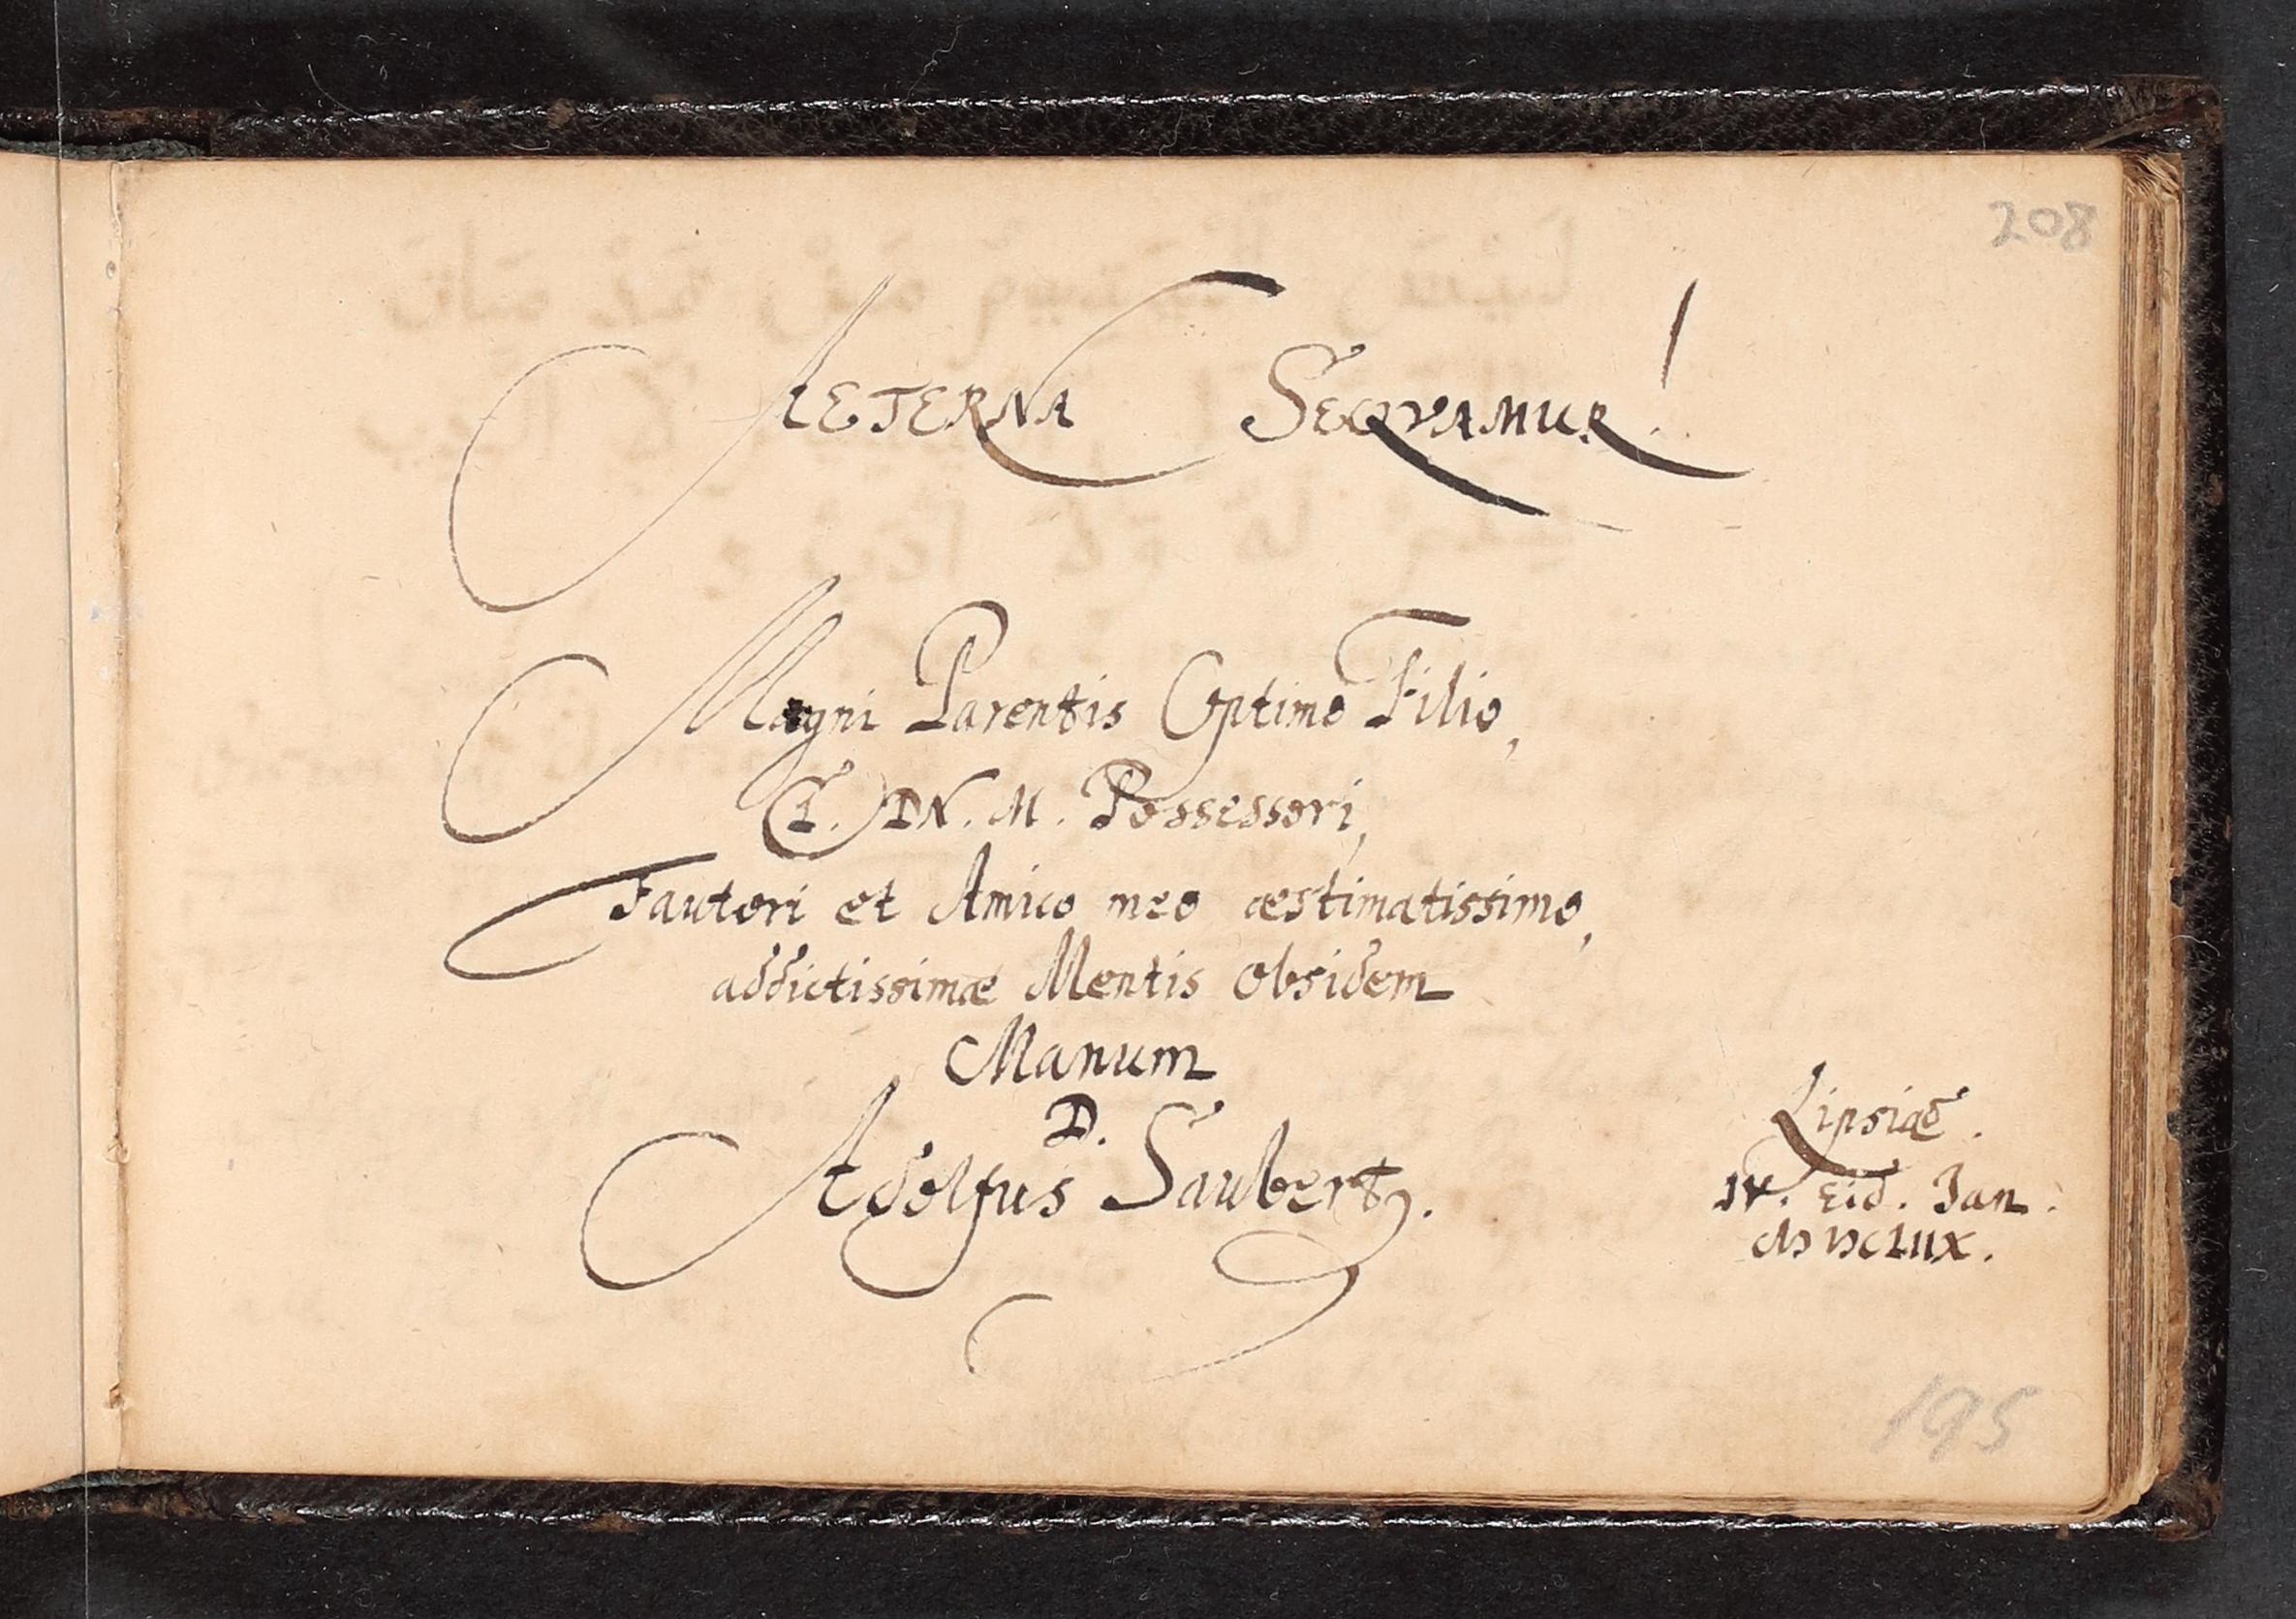 208
AETERNA SEQVAMUR!
Magni Parentis Optimo Filio,
Cl. DN. M. Possessori,
Fautori et Amico meo æstimatissimo,
addictissimæ Mentis obsidem
Manum
D.
Adolfus Saubert9.
Lipsiæ.
IV. Eid. Jan.
CIↃ IↃCLIIX.
195